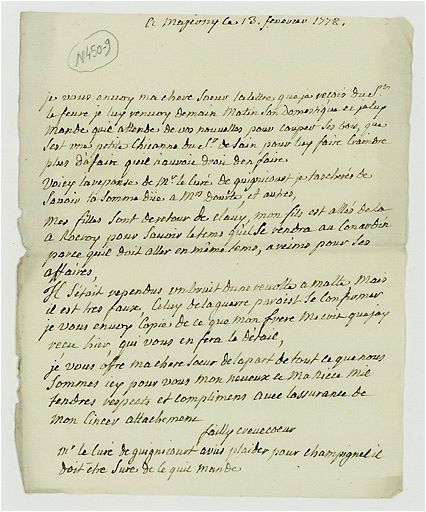 A Mezieres le 13. fevrier 1778.
N450-9
je vous envoy ma chere soeur la lettre que je recois du Sr
le feure je luy renvoy demain Matin son domestique et je luy
Mande qu'il attende de vos nouvelles pour couper ses bois, que
c'est une petite Chicanne du Sr de Sain pour luy faire craindre
plus d'afaire qu'il n'auroit droit d'en faire
Voicy la reponse de Mr le Curé de guignicourt je tascherés de
Savoir la somme düe a Mrs et autres,
Mes filles sont de retour de clavy, mon fils est allés de la
a Rocroy pour savoir le tems quil se rendra au
parce quil doit aller en même tems, a reims pour ses
affaires,
Il s'étoit rependus un bruit d'une revolte a malte, Mais
il est tres faux. Celuy de la guerre paroist se confirmer
je vous envoy Copies de ce que mon frere M'ecrit que jay
recu hier, qui vous en fera le détail,
je vous offre ma chere soeur de la part de tout ce que nous
sommes icy pour vous mon neveux et Ma Niéce mil
tendres respects et complimens avec lassurance de
mon sincer attachement
failly crevecoeur
Mr le Curé de guignicourt a vüs plaider pour champagnel il
doit être sure de ce quil mande